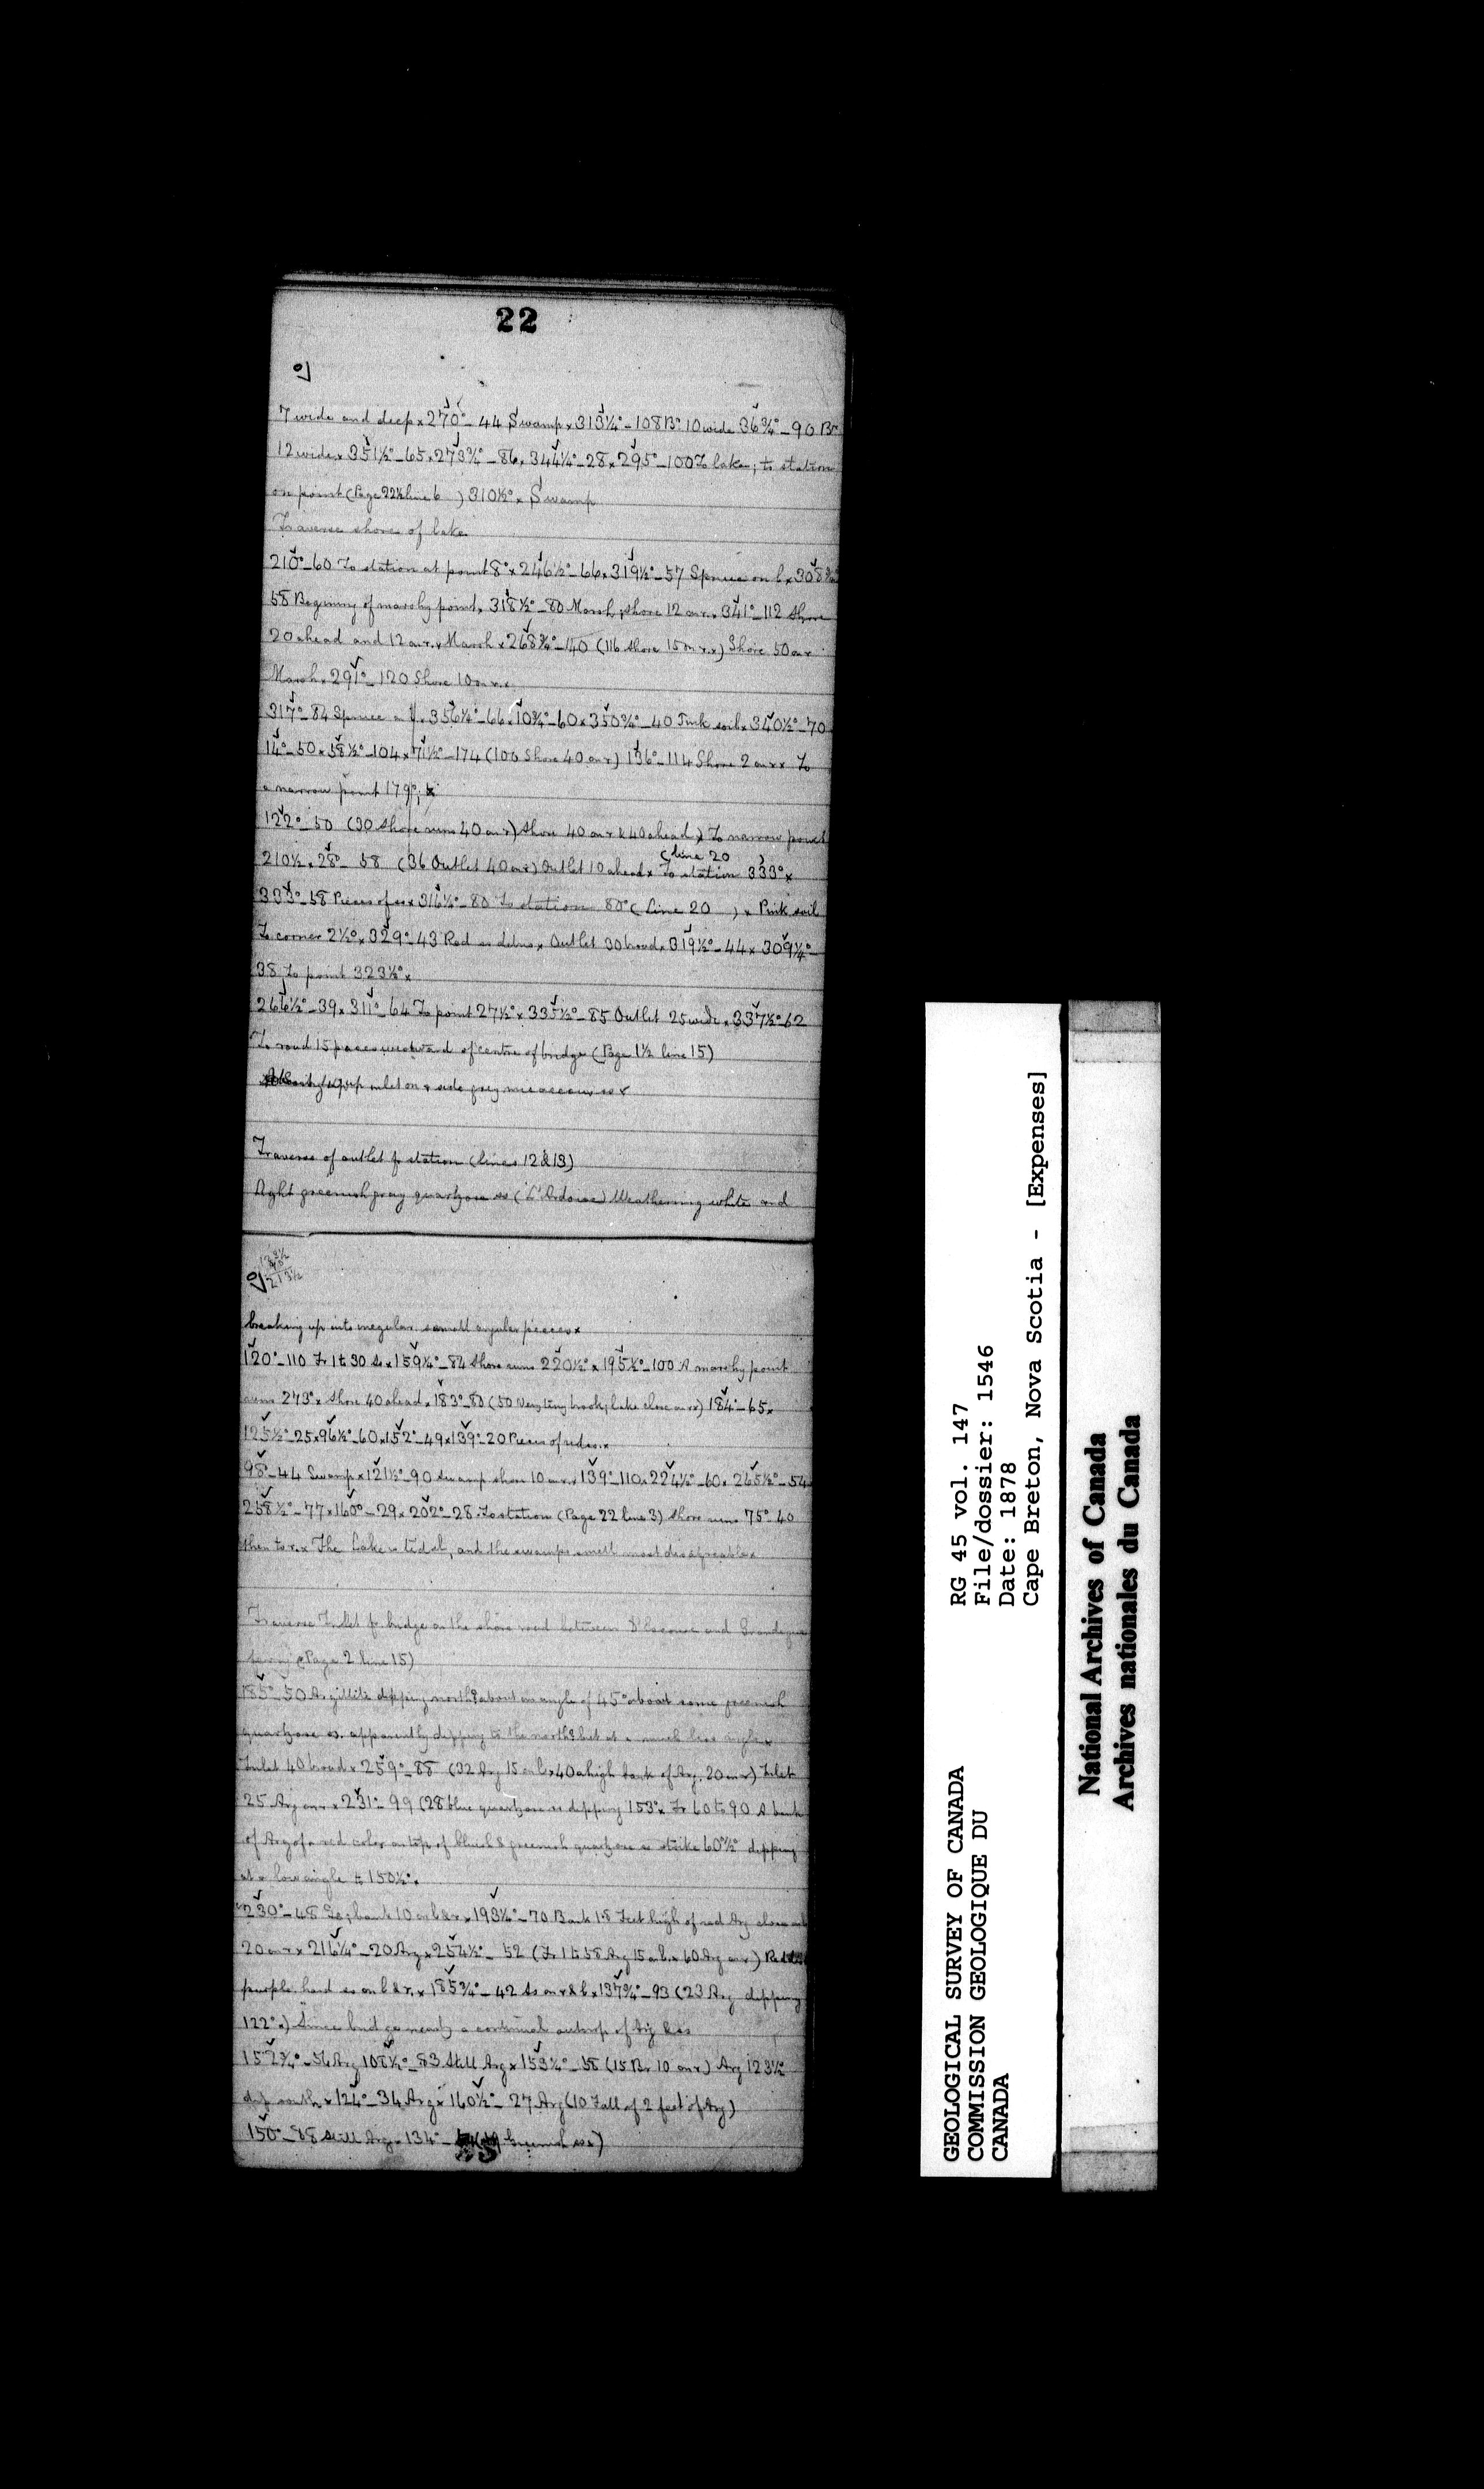 22
7 wide and deep x 270° - 44 Swamp x 313¼° - 108 Br 10 wide 36¾° - 90 Br
12 wide x 351½° - 65 x 273¾° - 86 x 344¼° - 28 x 295° - 100 To lake; to station
on point (Page 22½ line 6 ) 310½° x Swamp
Traverse shore of lake
210° - 60 To station at point 8° x 246½° - 66 x 319½° - 57 Spruce on l x 308¾
58 Beginning of marshy point x 318½° - 80 Marsh; shore 12 on r. x 341° - 112 Shore
20 ahead and 12 on r. x Marsh x 268¾° - 140 (116 shore 15 on r. x) Shore 50 on r
Marsh x 291° - 120 Shore 10 on r. x
317° - 84 Spruce on l. x 356¼° - 66 x 10¾° - 60 x 350¾° - 40 Pink soil x 340½° - 70
14° - 50 x 58½° - 104 x 71½° - 174 (100 Shore 40 on r) 136° - 114 Shore 2 on r x To
a narrow point 179°; x
122° - 50 (30 Shore runs 40 on r) Shore 40 on r & 40 ahead x To narrow point
(line 20
210½ x 28° - 58 (36 Outlet 40 on r) Outlet 10 ahead x To station 333° x
333° - 58 Pieces of ss x 316½° - 80 To station 80° (Line 20 ) x Pink soil
To corner 2½° x 329° - 43 Red ss debris x Outlet 30 broad x 319½° - 44 x 309¼° -
38 To point 323½° x
266½° - 39 x 311° - 64 To point 27½° x 335½° - 85 Outlet 25 wide x 337½° - 62
To road 15 paces westward of centre of bridge (Page 1½ line 15)
inlet on r side grey micaceous ss x
Traverse of outlet fr station (lines 12 & 13)
Light greenish gray quartzose ss (L'Ardoise) Weathering white and
213½
breaking up into irregular small angular pieces x
120° - 110 Fr 1 to 30 Ss x 159¼° - 84 Shore runs 220½° x 195¼° - 100 A marshy point
runs 273° x Shore 40 ahead x 183° - 80 (50 Very tiny brook; lake close on r x) 184° - 65 x
125½° - 25 x 96½° - 60 x 152° - 49 x 139° - 20 Pieces of red ss. x
98° - 44 Swamp x 121½° - 90 Swamp shore 10 on r. x 139° - 110 x 224½° - 60 x 265½° - 54
258½° - 77 x 160° - 29 x 202° - 28 To station (Page 22 line 3) Shore runs 75° 40
then to r. x The Lake is tidal, and the swamps smell most disagreeable x
Traverse Inlet fr bridge on the shore road between and Grandique
ferry (Page 2 line 15)
185° - 50 Argillite dipping north & about an angle of 45° about some greenish
quartzose ss. apparently dipping to the north & but at a much less angle x
Inlet 40 broad x 259° - 88 (32 Arg 15 on l x 40 a high bank of Arg. 20 on r) Inlet
25 Arg on r x 231° - 99 (28 blue quartzose ss dipping 153° x Fr 60 to 90 A bank
of Arg of a red color on top of bluish & greenish quartzose ss strike 60½° dipping
at a low angle to 150½° x
230° - 48 Do; bank 10 on l & r. x 193¼° - 70 Bank 18 Feet high of red Arg close
20 on r x 216¼° - 20 Arg x 254½° - 52 (Fr 1 to 58 Arg 15 on l. x 60 Arg on r)
purple hard ss on l & r. x 185¾° - 42 Ss on r & l x 137¾° - 93 (23 Arg dipping
122° x) Since bridge nearly a continual outcrop of Arg & ss
152¾° - 56 Arg 108½° - 83 Still Arg x 153¼° - 58 (15 Br 10 on r) Arg 123½
dip south x 124° - 34 Arg x 160½° - 27 Arg (10 Fall of 2 feet of Arg)
150° - 98 Still Arg x 134° - Greenish ss)
GEOLOGICAL SURVEY OF CANADA
COMMISSION GEOLOGIQUE DU
CANADA
RG 45 vol. 147
File/dossier: 1546
Date: 1878
Cape Breton, Nova Scotia - [Expenses]
National Archives of Canada
Archives nationales du Canada